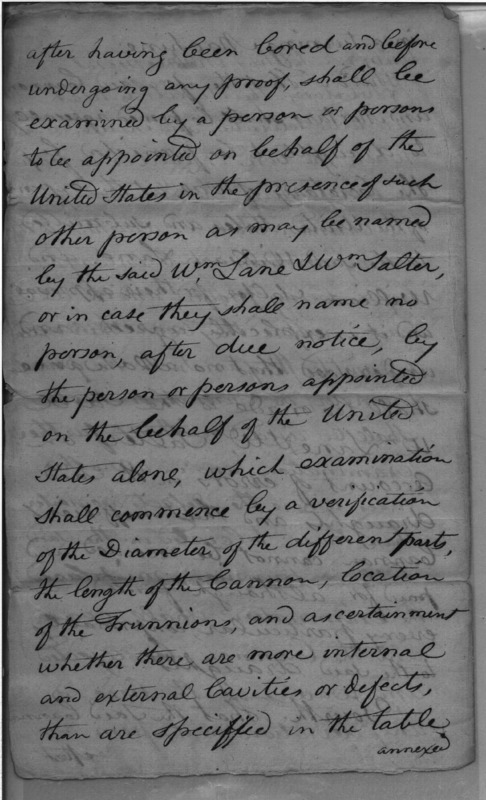 after having been bored and before
undergoing any proof, shall be
examined by a person or persons
to be appointed on behalf of the
United States in the presence of such
other person as may be named
by the said Wm Lane & Wm Salter,
or in case they shall name no
person, after due notice, by
the person or persons appointed
on the behalf of the United
States alone, which examination
shall commence by a verification
of the Diameter of the different parts,
the length of the Cannon, location
of the Trunnions, and ascertainment
whether there are more internal
and external Cavities or defects,
than are speciffed in the table
annexed